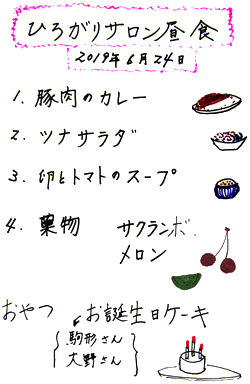 ひろがりサロン昼食
2019年6月24日
1. 豚肉のカレー
2. ツナサラダ
3. 卵とトマトのスープ
4. 菓物 サクランボ.
メロン
おやつ お誕生日ケーキ
駒形さん
大野さん